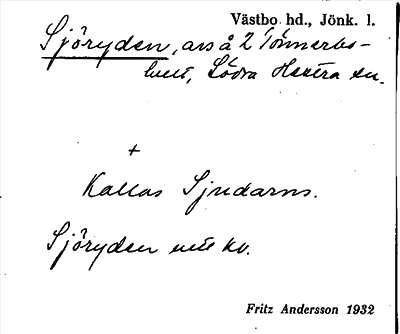 Västbo hd., Jönk. l.
Sjöryden, avs å 2 Tönnerbo-
hult, Södra Hestra sn.
+
Kallas Sjudarns.
Sjöryden utt kv.
Fritz Andersson 1932